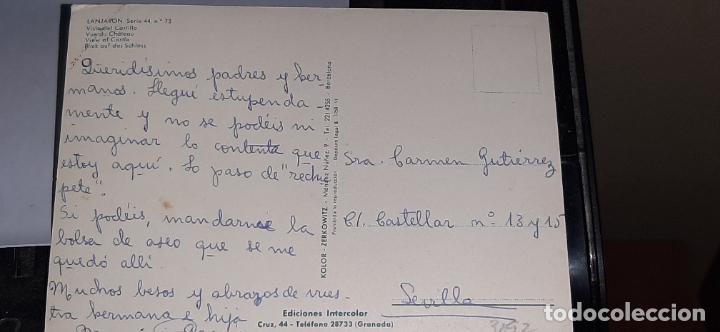 LANJARON Serie 44, n.º 73
Vista del Castillo
Vue du Château
View of Castle
Blick auf das Schloss
Queridísimos padres y her-
manos. Llegué estupenda-
mente y no se podéis ni
imaginar lo contenta que
estoy aquí. Lo paso de "rechu
pete".
Si podéis, mandarme la
bolsa de aseo que se me
quedó allí.
Muchos besos y abrazos de vues-
tra hermana e hija
KOLOR - ZERKOWITZ - Méndez Núñez, 9 - Tel. 221 4256 - Barcelona
Prohibida la reproducción
Sra. Carmen Gutiérrez
C/. Castellar nº 13 y 15
Sevilla
Ediciones Intercolor
Cruz, 44 - Teléfono 28733 (Granada)
todocoleccion